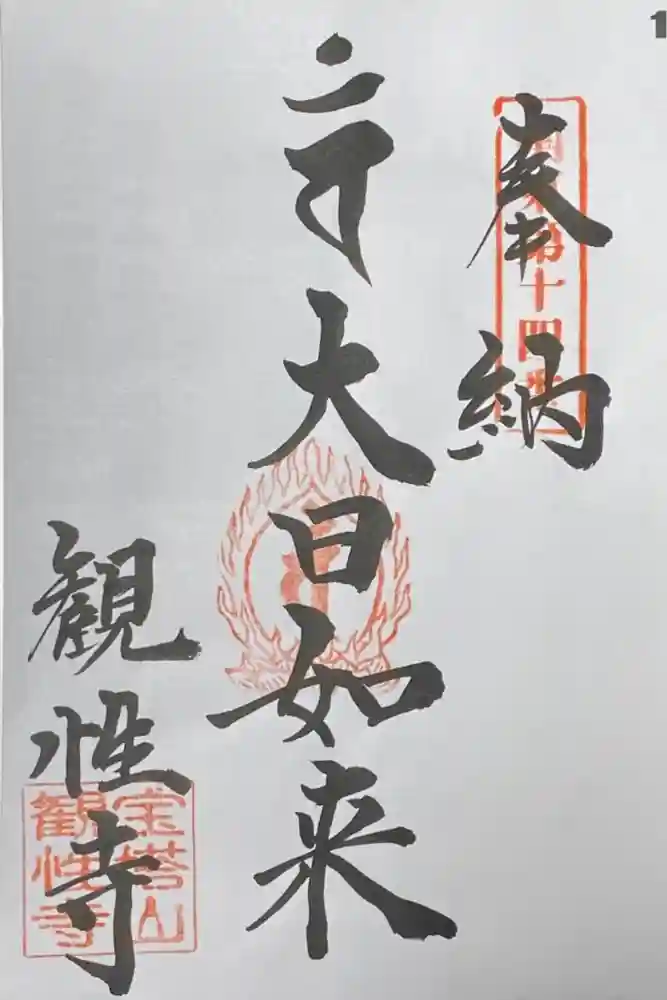 奉納
第十四
大日如来
観性寺
宝塔山
観性寺